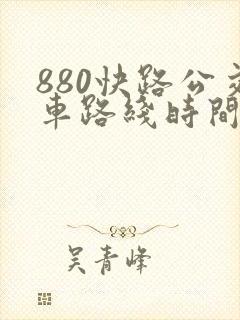 880快路公交
車路綫時間
吴青峰